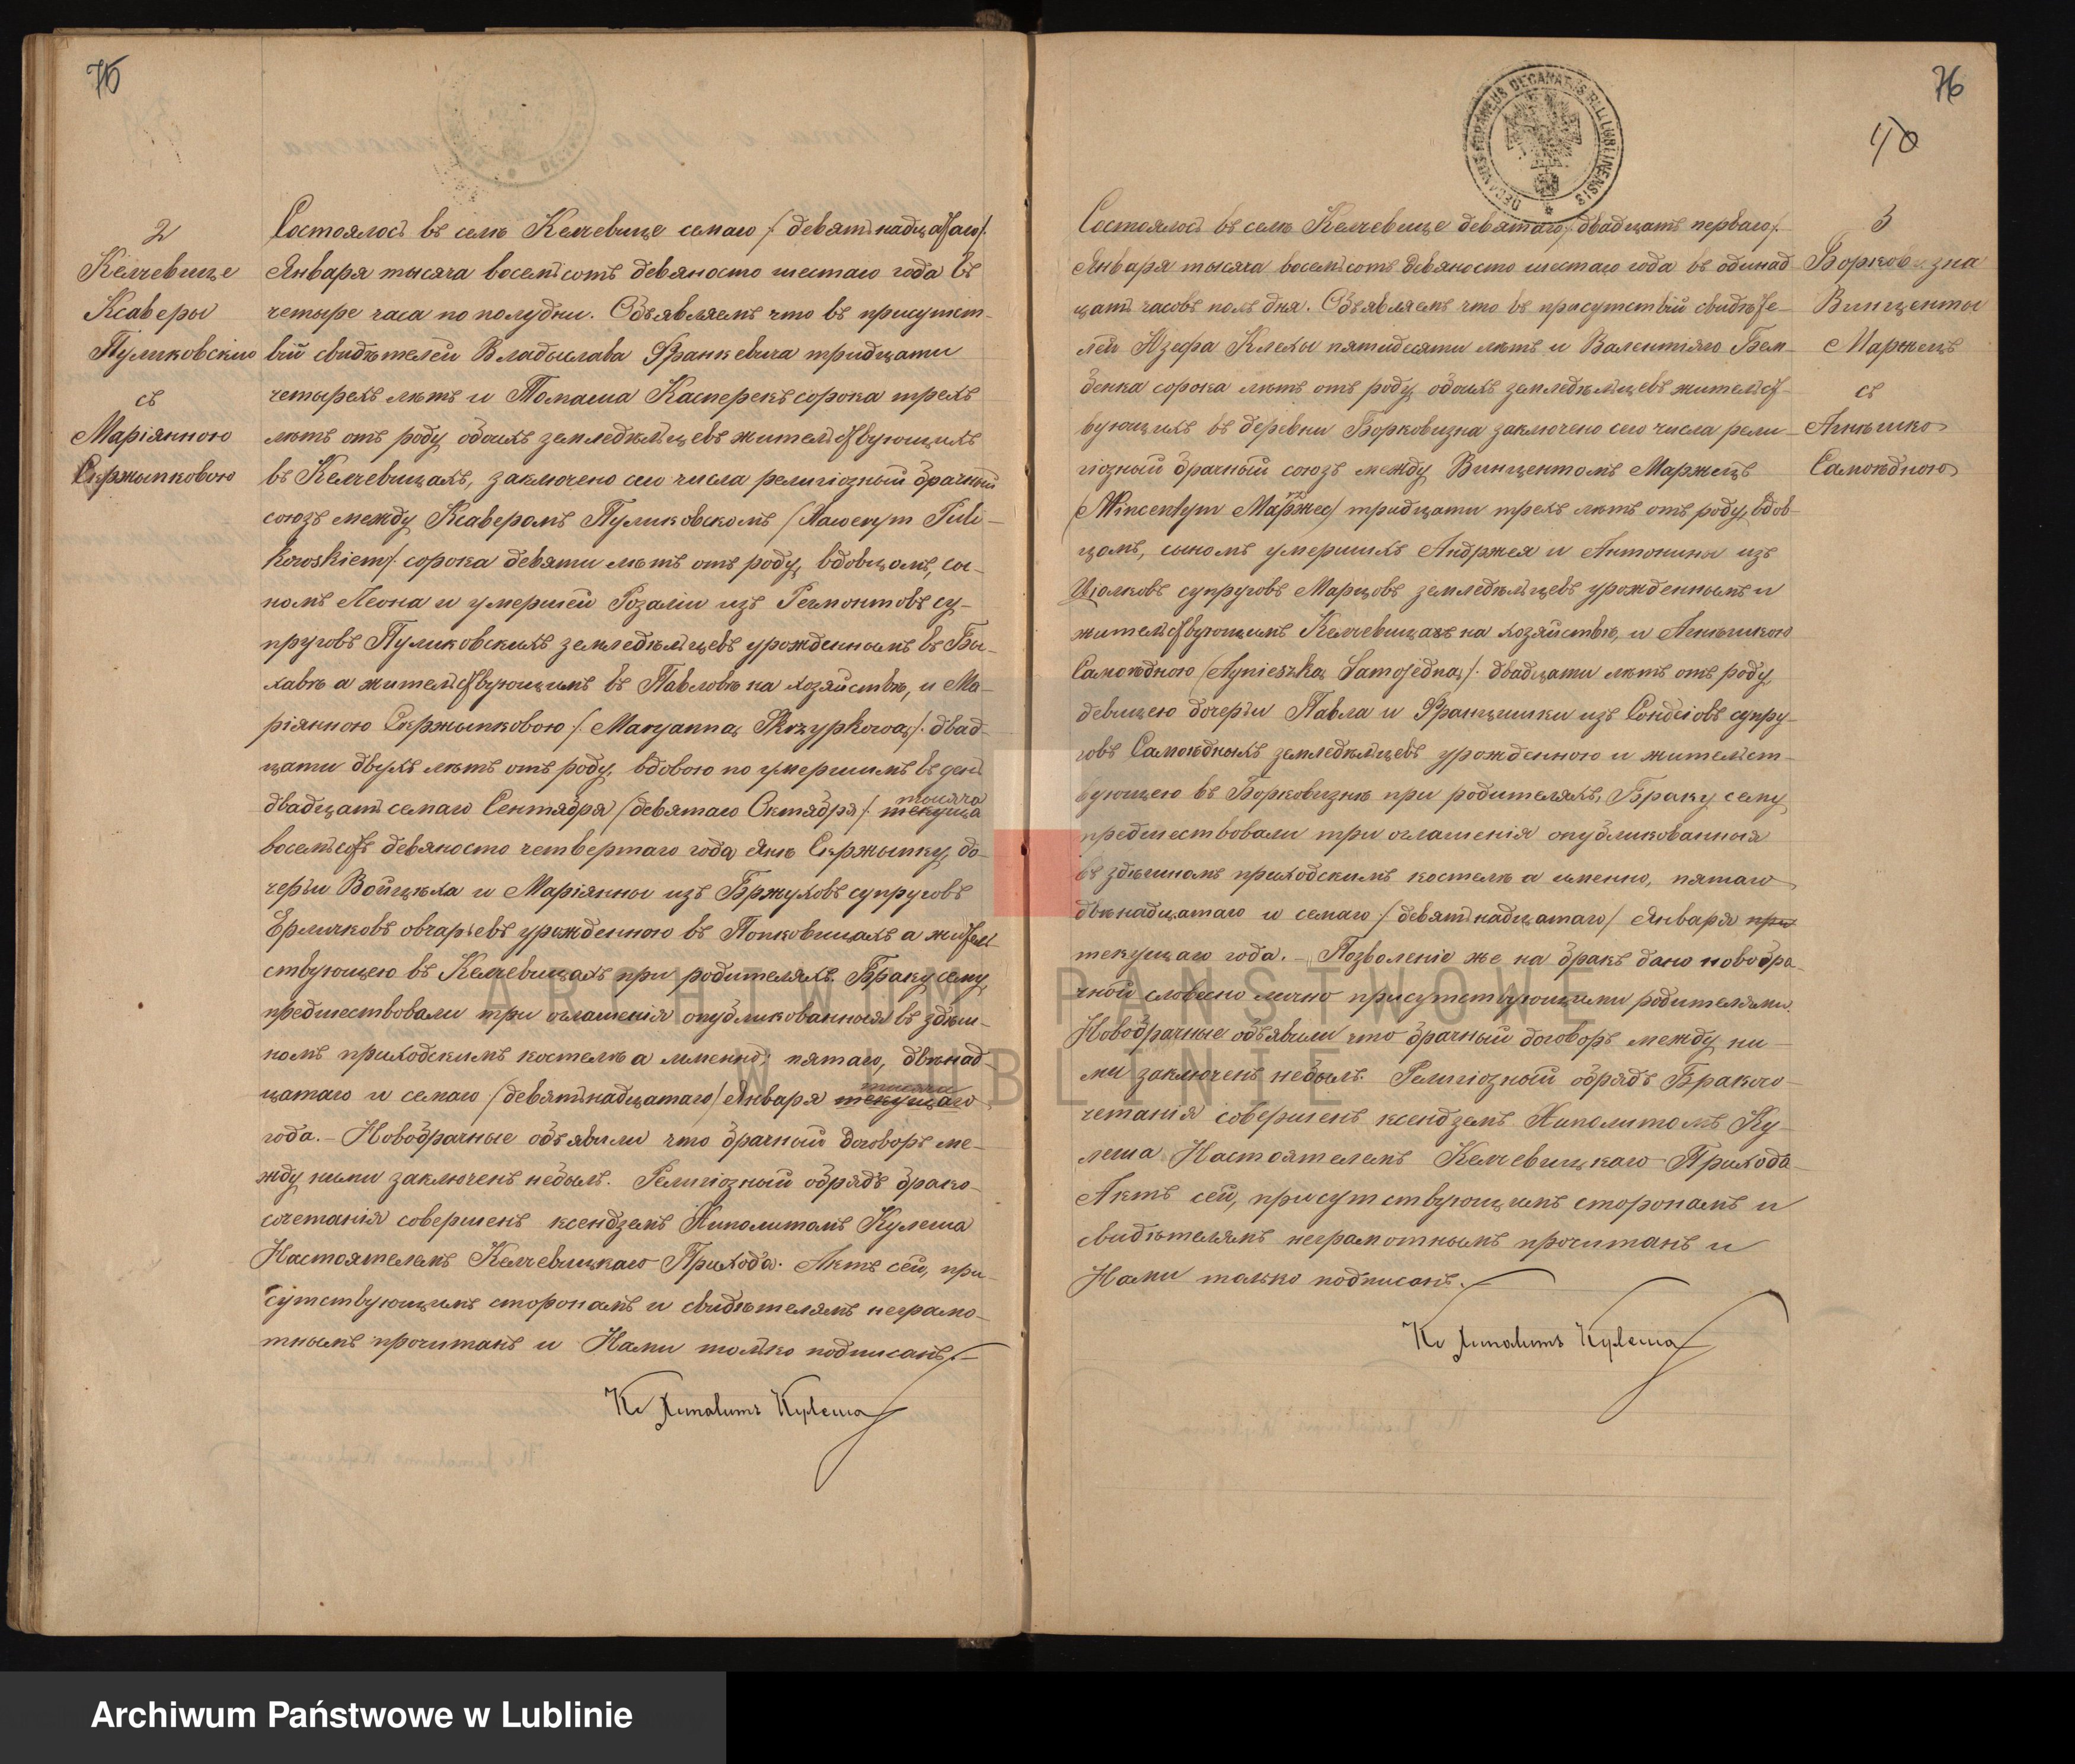 75
2
Келчевице
Ксаверы
Пуликовскій
съ
Маріянною
Скржыпковою
Состоялось въ селѣ Келчевице семаго /: девятнадцатаго/:
Января тысяча восемьсотъ девяносто шестаго года въ
четыре часа по полудни. Объявляемъ что въ присутст-
віи свидѣтелей Владыслава Франкевича тридцати
четырехъ лѣтъ и Томаша Касперекъ сорока трехъ
лѣтъ отъ роду, обоихъ земледѣльцевъ жительствующихъ
въ Келчевицахъ, заключено сего числа религіозный брачный
союзъ между Ксаверомъ Пуликовскомъ /Xawerym Puli-
kowskiem/: сорока девяти лѣтъ отъ роду, вдовцомъ, сы-
номъ Леона и умершей Розаліи изъ супруговъ
Пуликовскихъ земледѣльцевъ урожденнымъ въ Бы-
хавѣ а жительствующимъ въ Павловѣ на хозяйствѣ, и Ма-
ріянною Скржыпковою /: Maryanną Skrzypkową/: двад-
цати двухъ лѣтъ отъ роду, вдовою по умершимъ въ день
двадцать семаго Сентября /девятаго Октября/: тысяча
восемьсотъ девяносто четвертаго года Янѣ Скржыпку, до-
черьи Войцѣха и Маріянны изъ Бржуховъ супруговъ
Ерличковъ овчарьевъ урожденною въ Попковицахъ а житель-
ствующею въ Келчевицахъ при родителяхъ. Браку сему
предшествовали три оглашенія опубликованныя въ здѣш-
номъ приходскимъ костелѣ а именно; пятаго, двѣнад-
цатаго и семаго /девятнадцатаго/ Января текущаго
года. – Новобрачные объявили что брачный договоръ ме-
жду ними заключенъ небылъ. Религіозный обрядъ брако-
сочетанія совершенъ ксендземъ Хиполитомъ Кулеша
Настоятелемъ Келчевицкаго Прихода. Актъ сей, при-
сутствующимъ сторонамъ и свидѣтелямъ неграмо-
тнымъ прочитанъ и Нами только подписанъ. –
Кс Хиполитъ Кулеша
76
40
DECANUS FORANEUS DECANATUS LUBLINENSIS
3
Борковизна
Винценты
Маржецъ
съ
Агнѣшкою
Самоѣдною
Состоялось въ селѣ Келчевице девятаго /: двадцать перваго/:
Января тысяча восемьсотъ девяносто шестаго года въ одинад
цать часовъ полъ дня. Объявляемъ что въ присутствіи свидѣте-
лей Юзефа Клехы пятидесяти лѣтъ и Валентяго Бем-
бенка сорока лѣтъ отъ роду, обоихъ земледѣльцевъ жительст-
вующихъ въ деревни Борковизна заключено сего числа рели-
гіозный брачный союзъ между Винцентомъ Маржецъ
/Wincentym Маржес/ тридцати трехъ лѣтъ отъ роду, вдов-
цомъ, сыномъ умершихъ Анджея и Антонины изъ
Цюлковъ супруговъ Марцовъ земледѣльцевъ урожденнымъ и
жительствующимъ Келчевицахъ на хозяйствѣ, и Агнѣшкою
Самоѣдною /Agnieszką Samojedną/: двадцати лѣтъ отъ роду,
девицею дочерьи Павла и Францишки изъ Сондеіовъ супру-
говъ Самоѣдныхъ земледѣльцевъ урожденною и жительст-
вующею въ Борковизнѣ при родителяхъ, Браку сему
предшествовали три оглашенія опубликованныя
въ здѣшномъ приходскимъ костелѣ а именно, пятаго
двѣнадцатаго и семаго /девятнадцатаго/ Января при
текущаго года. – Позволеніе же на бракъ дано новобра-
чной словесно лично присутствующими родителями.
Новобрачные объявили что брачный договоръ между ни-
ми заключенъ небылъ. Религіозный обрядъ Бракосо-
четанія совершенъ ксендземъ Хиполитомъ Ку-
леша Настоятелемъ Келчевицкаго Прихода
Актъ сей, присутствующимъ сторонамъ и
свидѣтелямъ неграмотнымъ прочитанъ и
Нами только подписанъ. –
Кс Хиполитъ Кулеша
ARCHIWUM PAŃSTWOWE
W LUBLINIE
Archiwum Państwowe w Lublinie